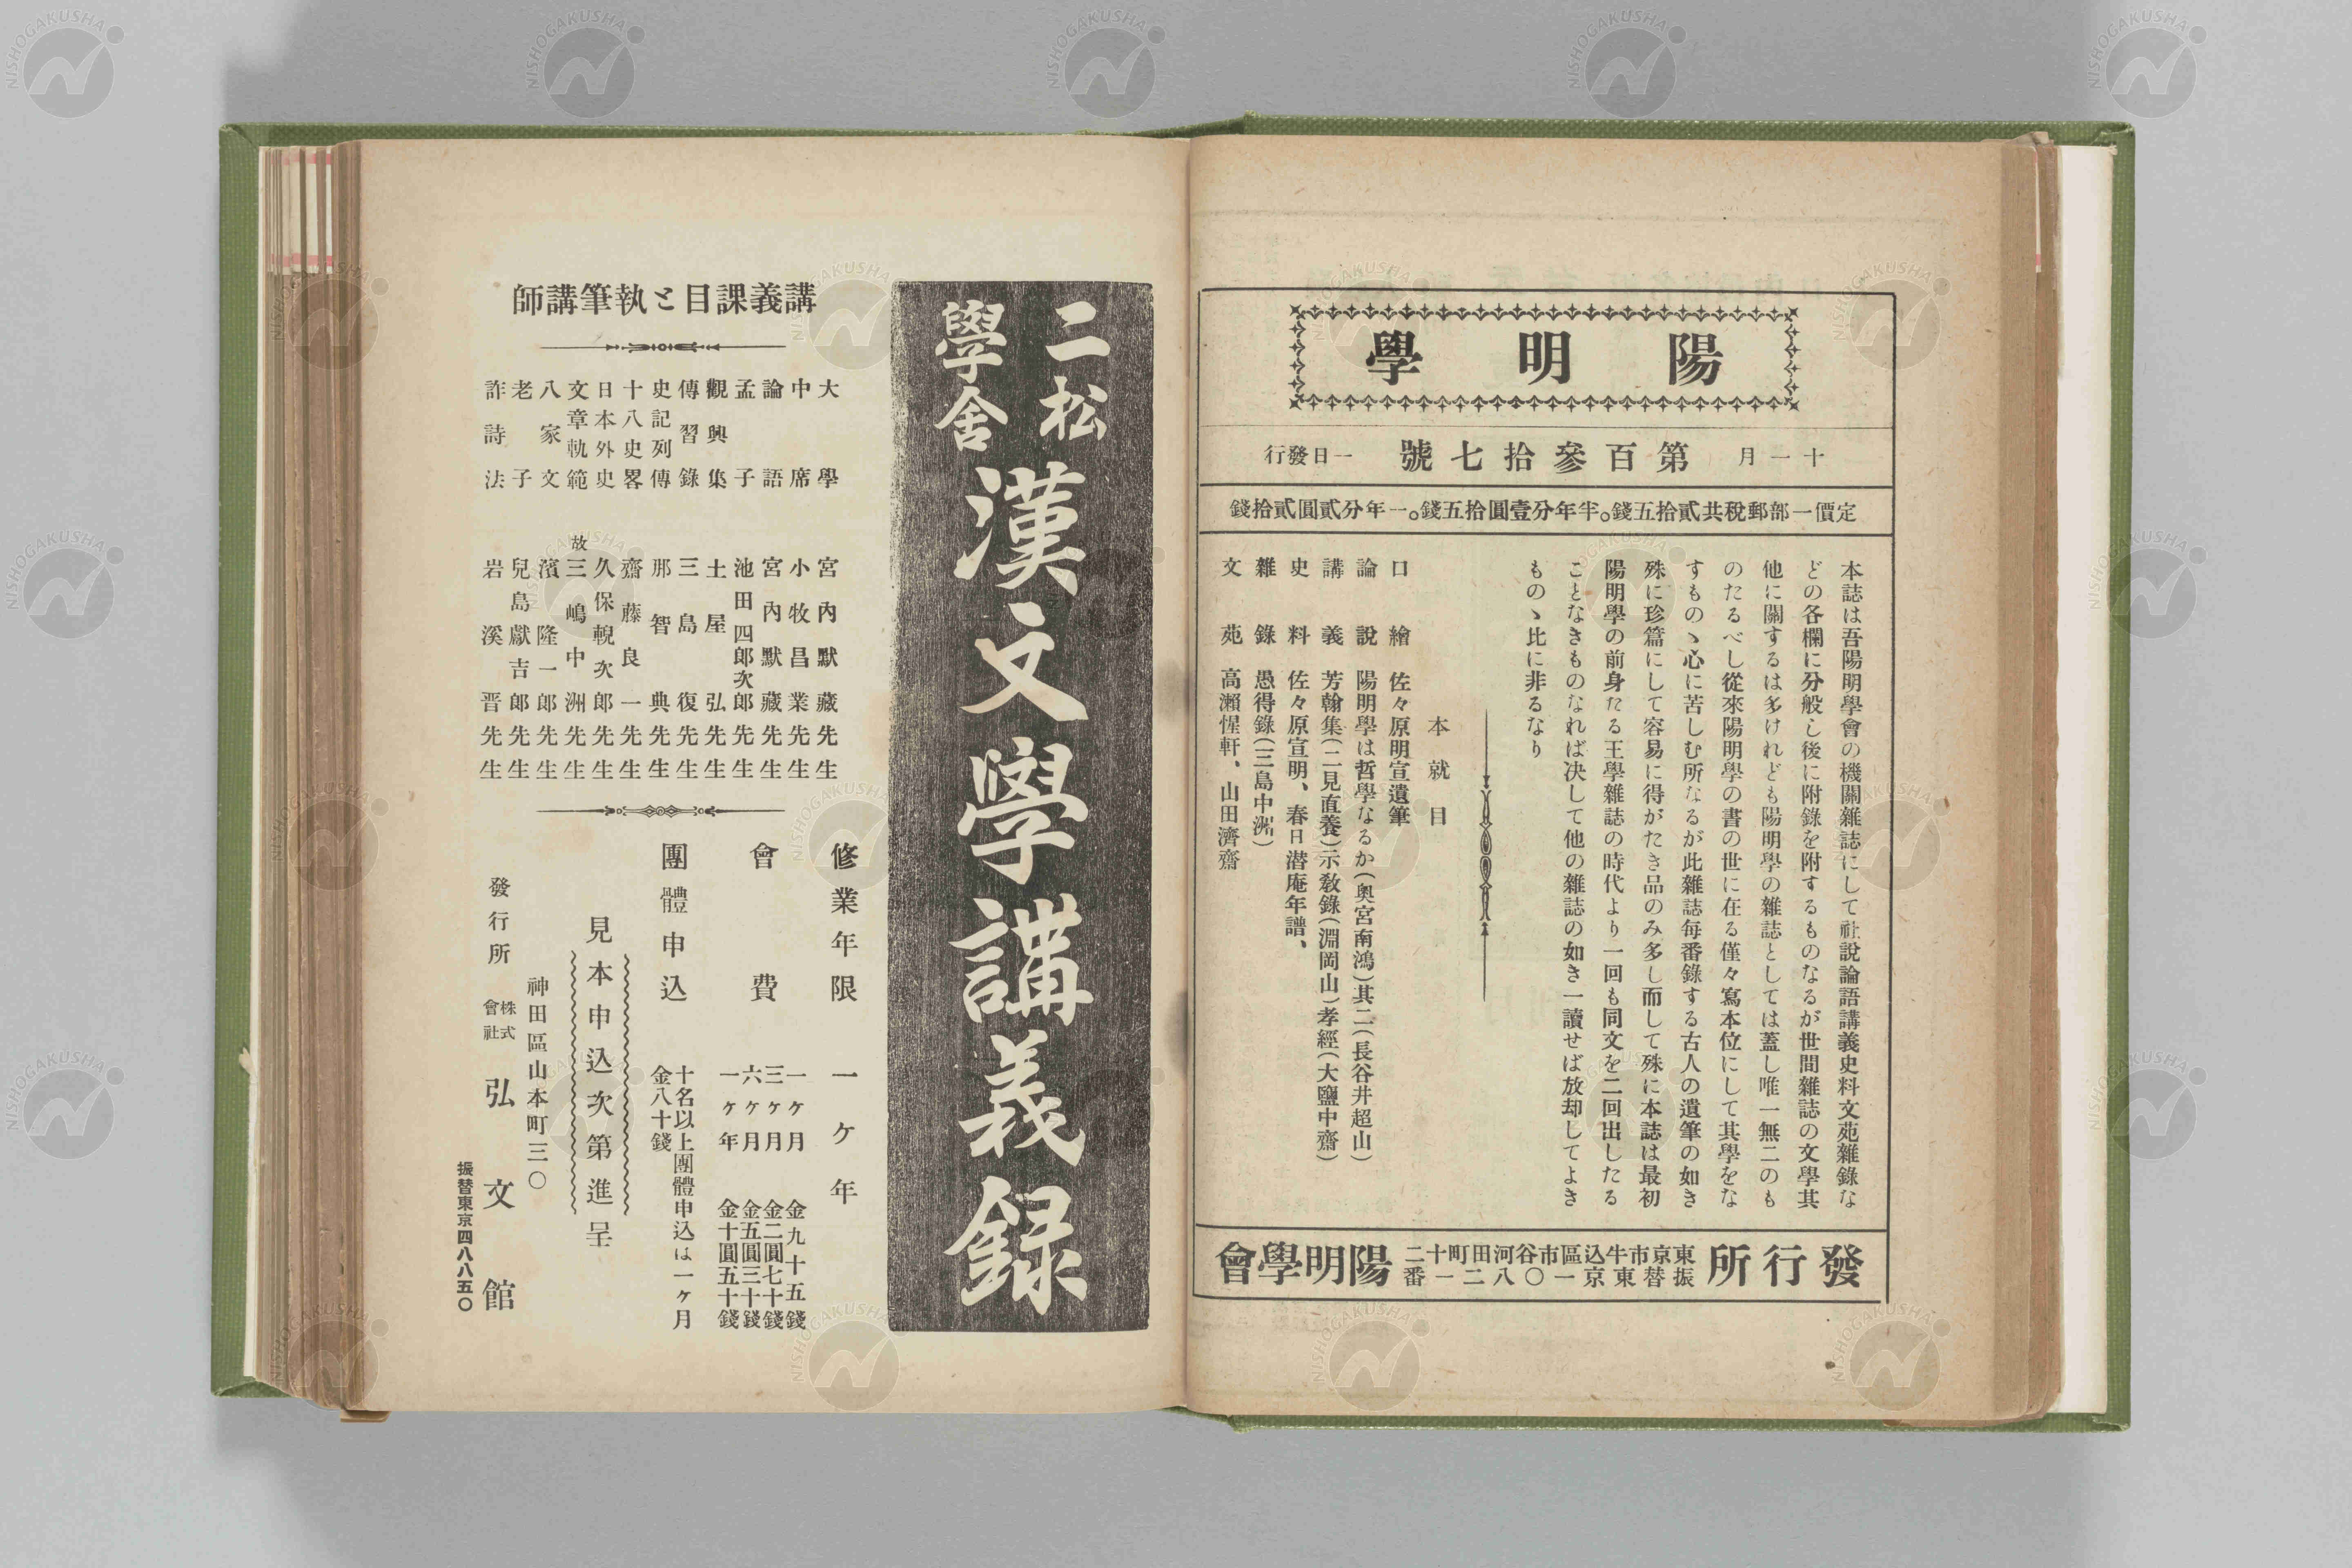 陽明學
十一月 第百參拾七號 一日發行
定價一部郵稅共貳拾五錢。半年分壹圓拾五錢。一年分貳圓貳拾錢
本誌は吾陽明學會の機關雜誌にして社說論語講義史料文苑雜錄な
どの各欄に分般し後に附錄を附するものなるが世間雜誌の文學其
他に關するは多けれども陽明學の雜誌としては蓋し唯一無二のも
のたるべし從來陽明學の書の世に在る僅々寫本位にして其學をな
すもの、心に苦しむ所なるが此雜誌每番錄する古人の遺筆の如き
殊に珍篇にして容易に得がたき品のみ多し而して殊に本誌は最初
陽明學の前身たる王學雜誌の時代より一回も同文を二回出したる
ことなきものなれば决して他の雜誌の如き一讀せば放却してよき
もの、比に非るなり
本就目
口繪 佐々原明宣遺筆
論說 陽明學は哲學なるか(奧宮南鴻)其二(長谷井超山)
講義 芳翰集(二見直養)示敎錄(淵岡山)孝經(大鹽中齋)
史料 佐々原宣明、春日潜庵年譜、
雜錄 愚得錄(三島中洲)
文苑 高瀨惺軒、山田濟齋
發行所 東京市牛込區市谷河田町十二 振替東京一〇八二一番 陽明學會
二松學舍 漢文學講義録
講義課目と執筆講師
大學 宮內默藏先生
中席 小牧昌業先生
論語 宮內默藏先生
孟子 池田四郎次郎先生
觀興集 土屋弘先生
傳習錄 三島復先生
史記列傳 那智典先生
十八史畧 齋藤良一先生
日本外史 久保輗次郎先生
文章軌範 故三嶋中洲先生
八家文 濱隆一郎先生
老子 兒島獻吉郎先生
詐詩法 岩溪晋先生
修業年限 一ケ年
會費 一ケ月 金九十五錢
三ケ月 金二圓七十錢
六ケ月 金五圓三十錢
一ケ年 金十圓五十錢
團體申込 十名以上團體申込は一ケ月
金八十錢
見本申込次第進呈
神田區山本町三〇
發行所 株式會社 弘文館
振替東京四八八五〇
NISHOGAKUSHA